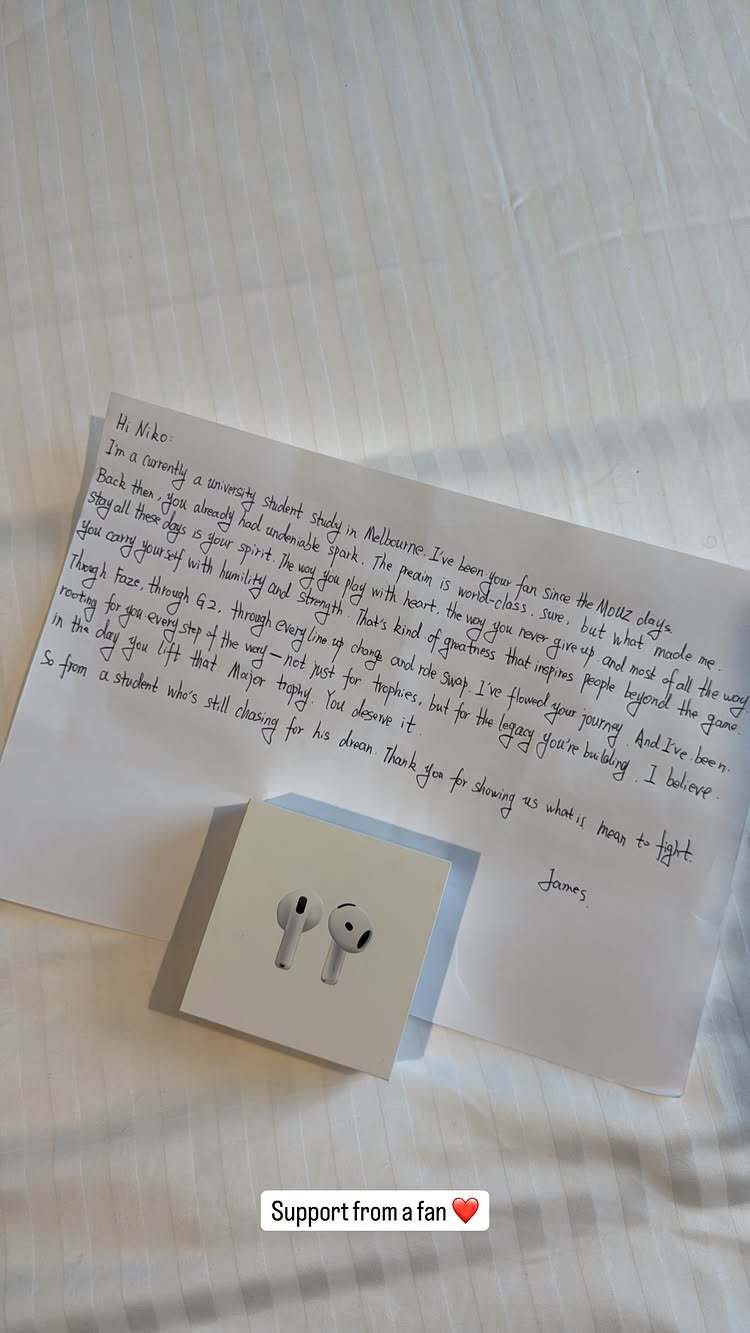 Hi Niko:
I'm a currently a university student study in Melbourne. I've been your fan since the MOUZ days.
Back then, you already had undeniable spark. The preaim is world-class, sure, but what made me.
stay all these days is your spirit. The way you play with heart, the way you never give up, and most of all the way
you carry yourself with humility and strength. That's kind of greatness that inspires people beyond the game.
Through Faze, through G2, through every line up change and role swap. I've flowed your journey. And I've been.
rooting for you every step of the way — not just for trophies, but for the legacy you're building. I believe.
in the day you lift that Major trophy. You deserve it.
So from a student who's still chasing for his drean. Thank you for showing us what is mean to fight.
James.
Support from a fan ❤️